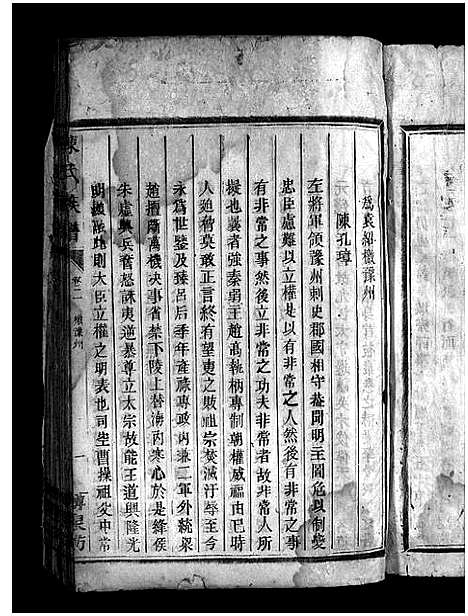 為袁紹檄豫州
陳孔璋
左將軍領豫州刺史郡國相守蓋聞明主圖危以制變
忠臣慮難以立權是以有非常之人然後有非常之事
有非常之事然後立非常之功夫非常者故非常人所
擬也曩者強秦弱王趙高執柄專制朝權威福由己時
人迫脅莫敢正言終有望夷之敗祖宗焚滅汙辱至今
永為世鑒及臻呂后季年產祿專政內兼二軍外統梁
趙擅斷萬機決事省禁下陵上替海內寒心於是絳侯
朱虛興兵奮怒誅夷逆暴尊立太宗故能王道興隆光
明顯融此則大臣立權之明表也司空曹操祖父中常
陳氏族譜
卷二
檄豫州
一